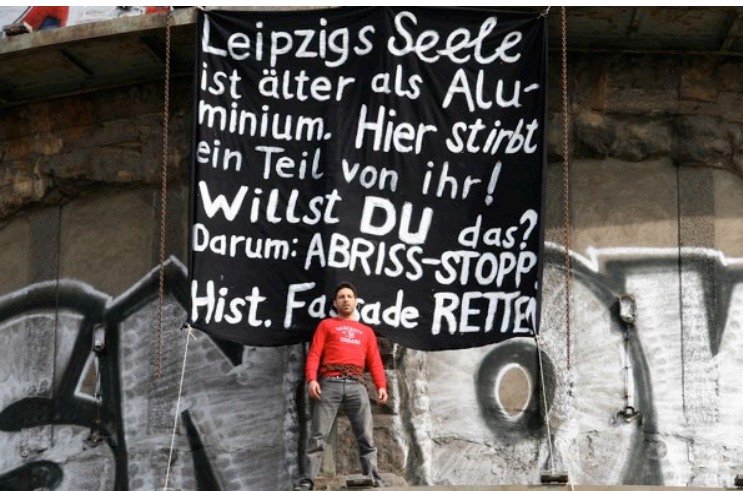 Leipzigs Seele
ist älter als Alu-
minium. Hier stirbt
ein Teil von ihr!
Willst DU das?
Darum: ABRISS-STOPP
Hist. Fassade RETTEN